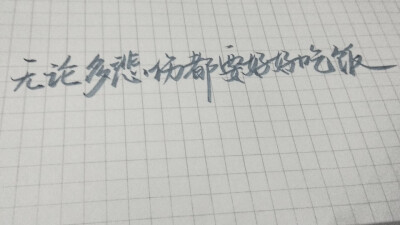 无论多悲伤都要好好吃饭